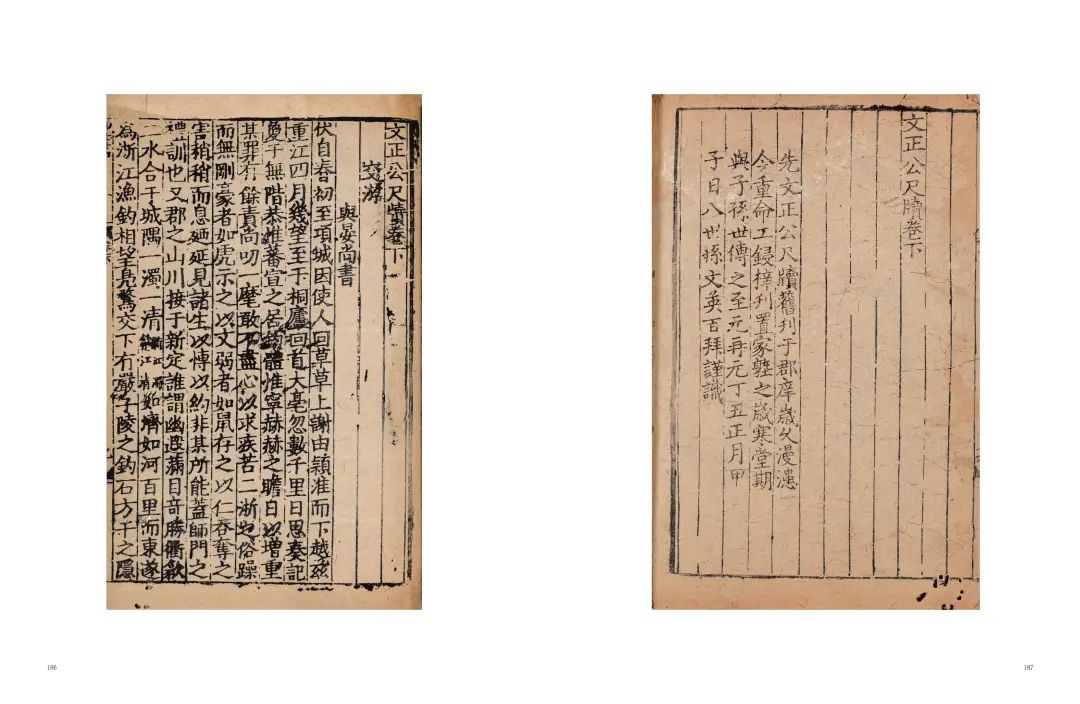 文正公尺牘卷下
交游
與晏尚書
伏自春初至項城因使人回草草上謝由潁淮而下越茲
重江四月幾望至于桐廬回首大亳忽數千里日思奏記
憂于無階恭惟蕃宣之居鈞體惟寧赫赫之瞻日以增重
某罪有餘責尚叨一麾敢不盡心以求疾苦二浙之俗躁
而無剛豪者如虎示之以文弱者如鼠存之以仁吞奪之
害稍稍而息廼延見諸生以博以約非某所能蓋師門之
禮訓也又郡之山川接于新定誰謂幽遐滿目奇勝衢歙
二水合于城隅一濁一清如濟如河百里而東遂
為浙江漁釣相望鳧鶩交下有嚴子陵之釣石方干之隱
186
文正公尺牘卷下
先文正公尺牘舊刊于郡庠歲久漫漶
今重命工鋟梓刊置家塾之歲寒堂期
與子孫世傳之至元再元丁丑正月甲
子日八世孫文英百拜謹識
187